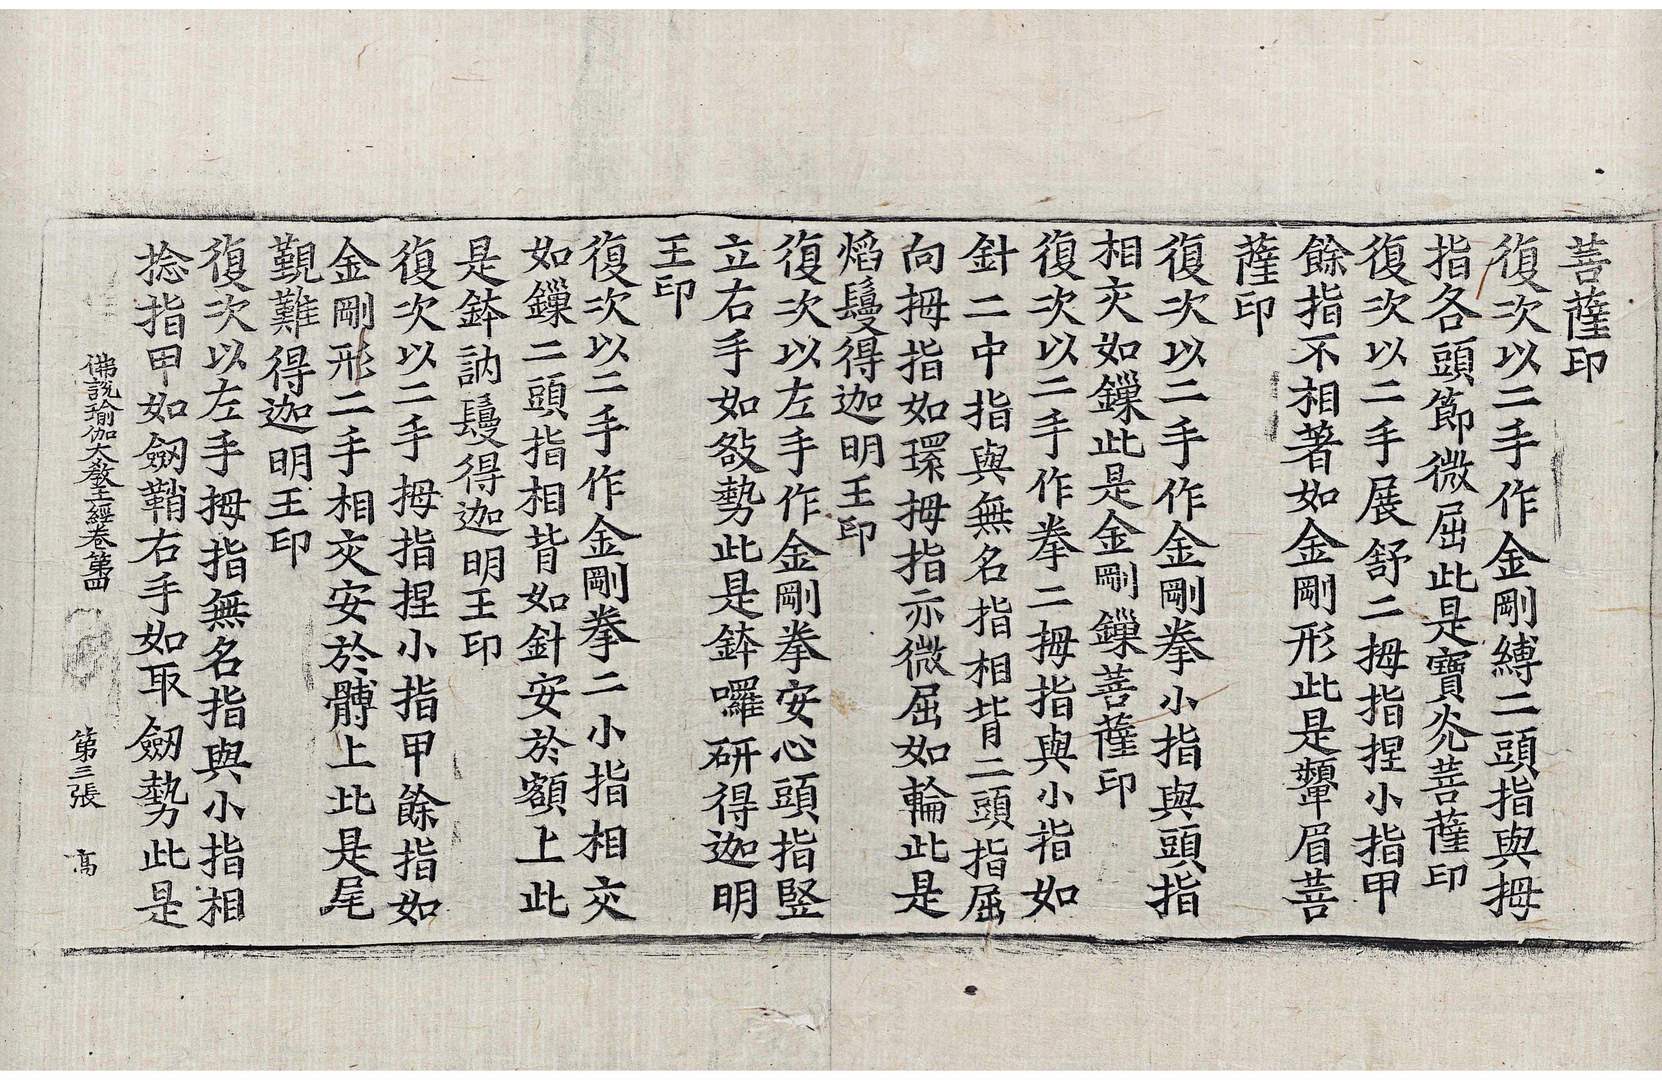 菩薩印
復次以二手作金剛縛二頭指與拇
指各頭節微屈此是寶光菩薩印
復次以二手展舒二拇指捏小指甲
餘指不相著如金剛形此是顰眉菩
薩印
復次以二手作金剛拳小指與頭指
相交如鏁此是金剛鏁菩薩印
復次以二手作拳二拇指與小指如
針二中指與無名指相背二頭指屈
向拇指如環拇指亦微屈如輪此是
焰鬘得迦明王印
復次以左手作金剛拳安心頭指竪
立右手如敆勢此是鉢囉研得迦明
王印
復次以二手作金剛拳二小指相交
如鏁二頭指相背如針安於額上此
是鉢訥鬘得迦明王印
復次以二手拇指捏小指甲餘指如
金剛形二手相交安於髆上此是尾
覲難得迦明王印
復次以左手拇指無名指與小指相
捻指甲如劒鞘右手如取劒勢此是
佛說瑜伽大敎王經卷第四 第三張 高